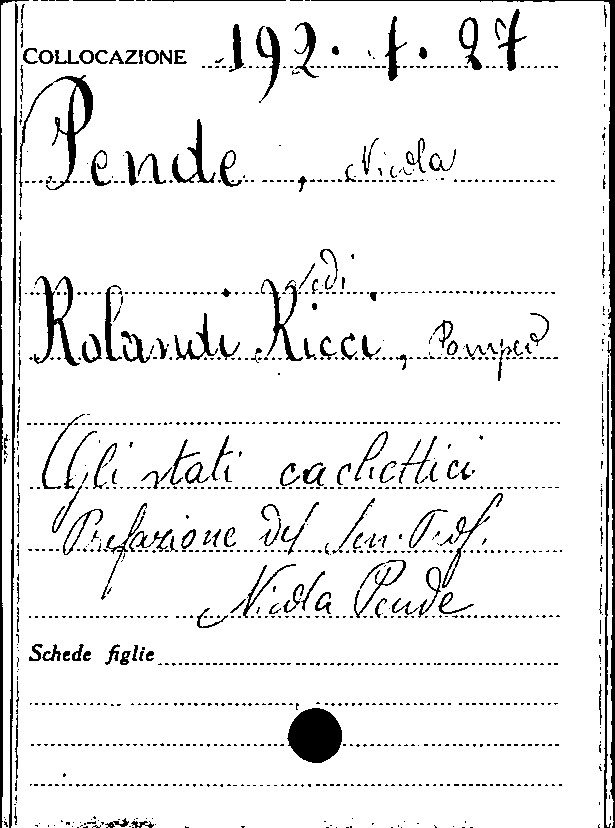 COLLOCAZIONE 192. 1. 27
Pende, Nicola
Vedi
Rolandi Ricci, Pompeo
Gli stati cachettici
Prefazione del Sen. Prof.
Nicola Pende
Schede figlie